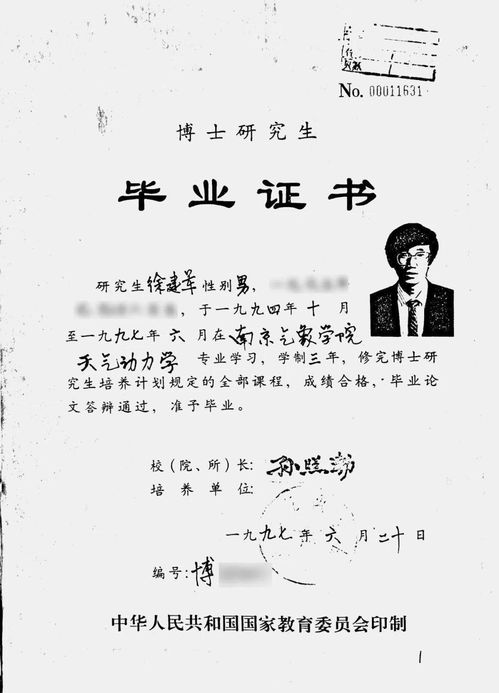 No. 00011631
博士研究生
毕业证书
研究生徐建军性别男，
，于一九九四年十月
至一九九七年六月在南京气象学院
天气动力学 专业学习，学制三年，修完博士研
究生培养计划规定的全部课程，成绩合格，毕业论
文答辩通过，准予毕业。
校（院、所）长：孙照渤
培养单位：
一九九七年六月二十日
编号：博
中华人民共和国国家教育委员会印制
1